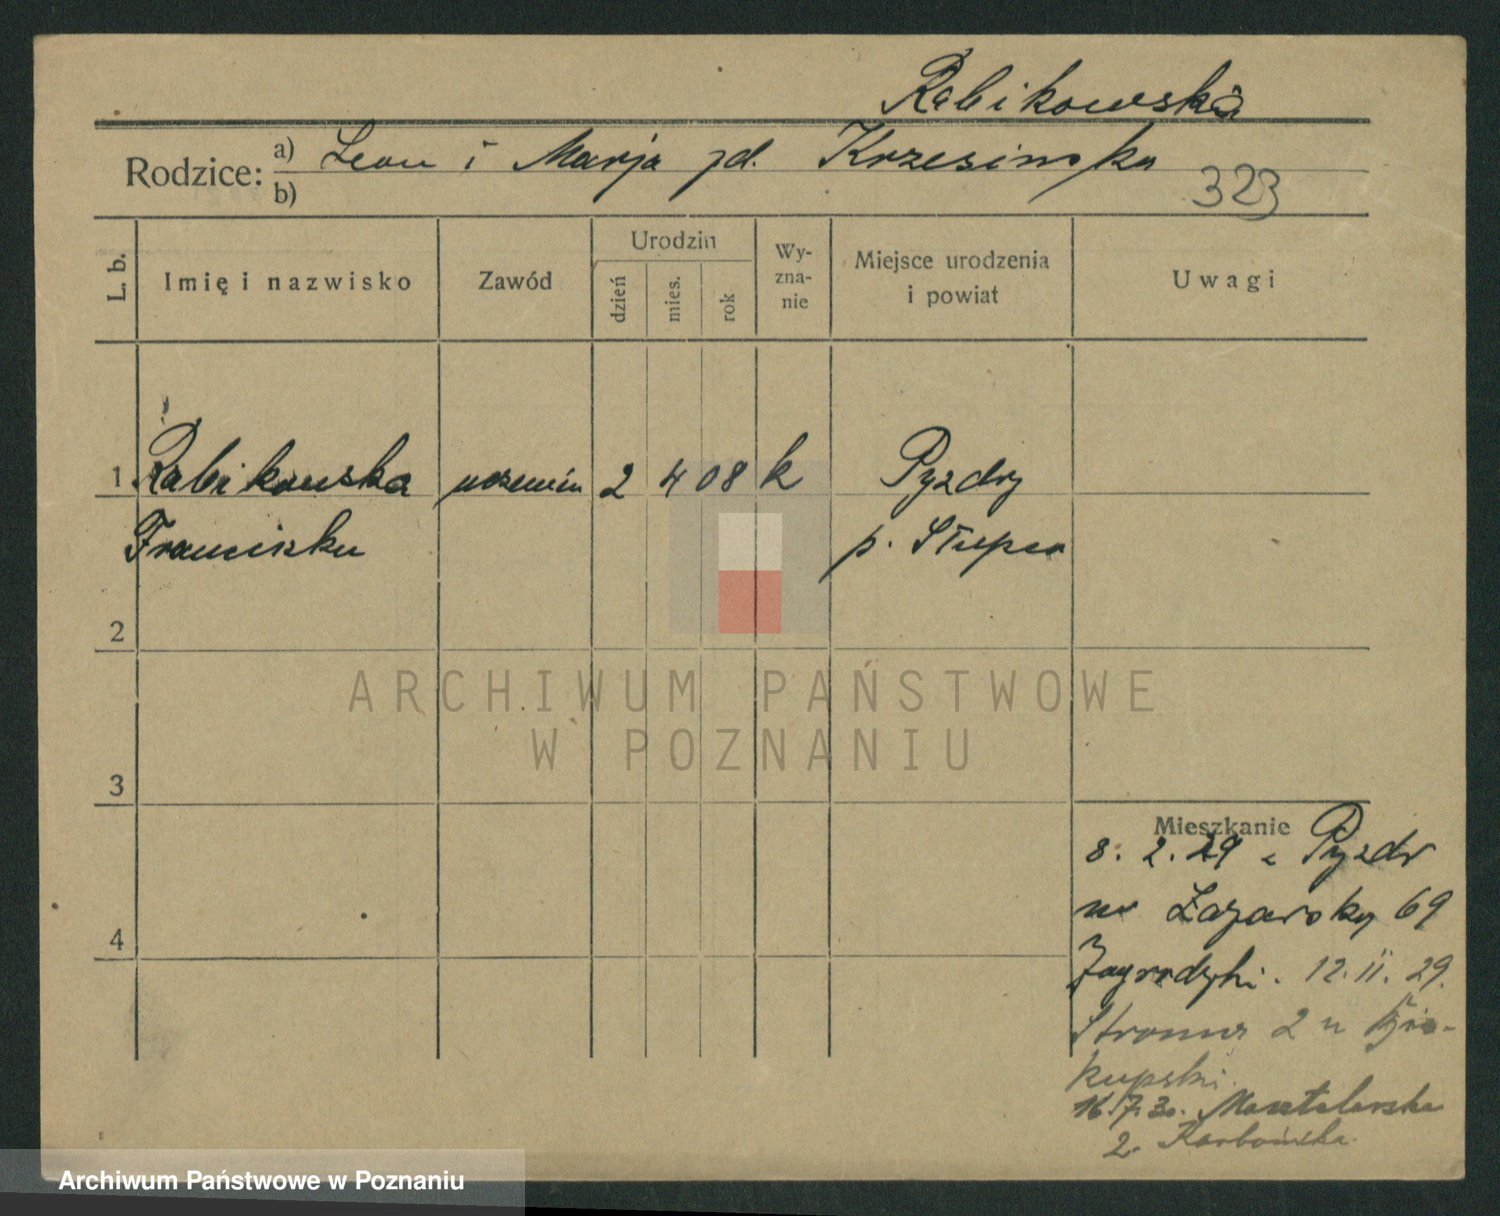 Rabikowska
Rodzice: a) Leon i Marja zd. Krzesińska
b)
323
L. b.
Imię i nazwisko
Zawód
Urodzin
dzień
mies.
rok
Wy-
zna-
nie
Miejsce urodzenia
i powiat
Uwagi
1 Rabikowska uczenin 2 4 08 k Pyzdry
Franciszka p. Słupca
2
3
4
Mieszkanie
8. 2. 29 z Pyzdr
Łazarska 69
Zagrodzki. 12. II. 29.
Stroma 2 u Bis-
kupski.
16.7.30. Masztalarska
2. Karbońska
ARCHIWUM PAŃSTWOWE
W POZNANIU
Archiwum Państwowe w Poznaniu